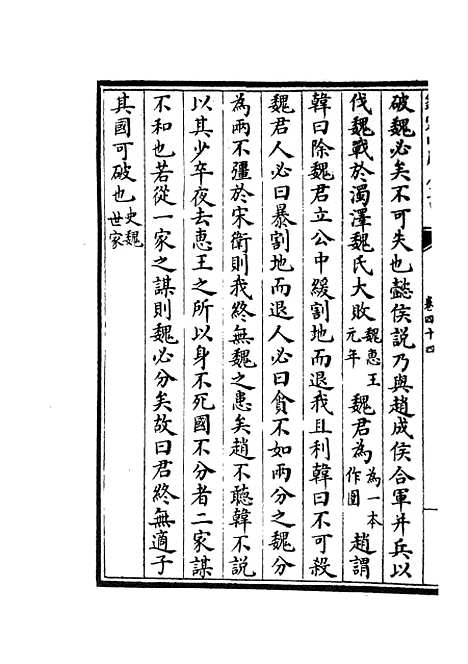 破魏必矣不可失也懿侯説乃與趙成侯合軍并兵以
伐魏戰於濁澤魏氏大敗魏惠王元年魏君為為一本作圍趙謂
韓曰除魏君立公中緩割地而退我且利韓曰不可殺
魏君人必曰暴割地而退人必曰貪不如兩分之魏分
為兩不彊於宋衛則我終無魏之患矣趙不聽韓不説
以其少卒夜去惠王之所以身不死國不分者二家謀
不和也若從一家之謀則魏必分矣故曰君終無適子
其國可破也史魏世家
卷四十四